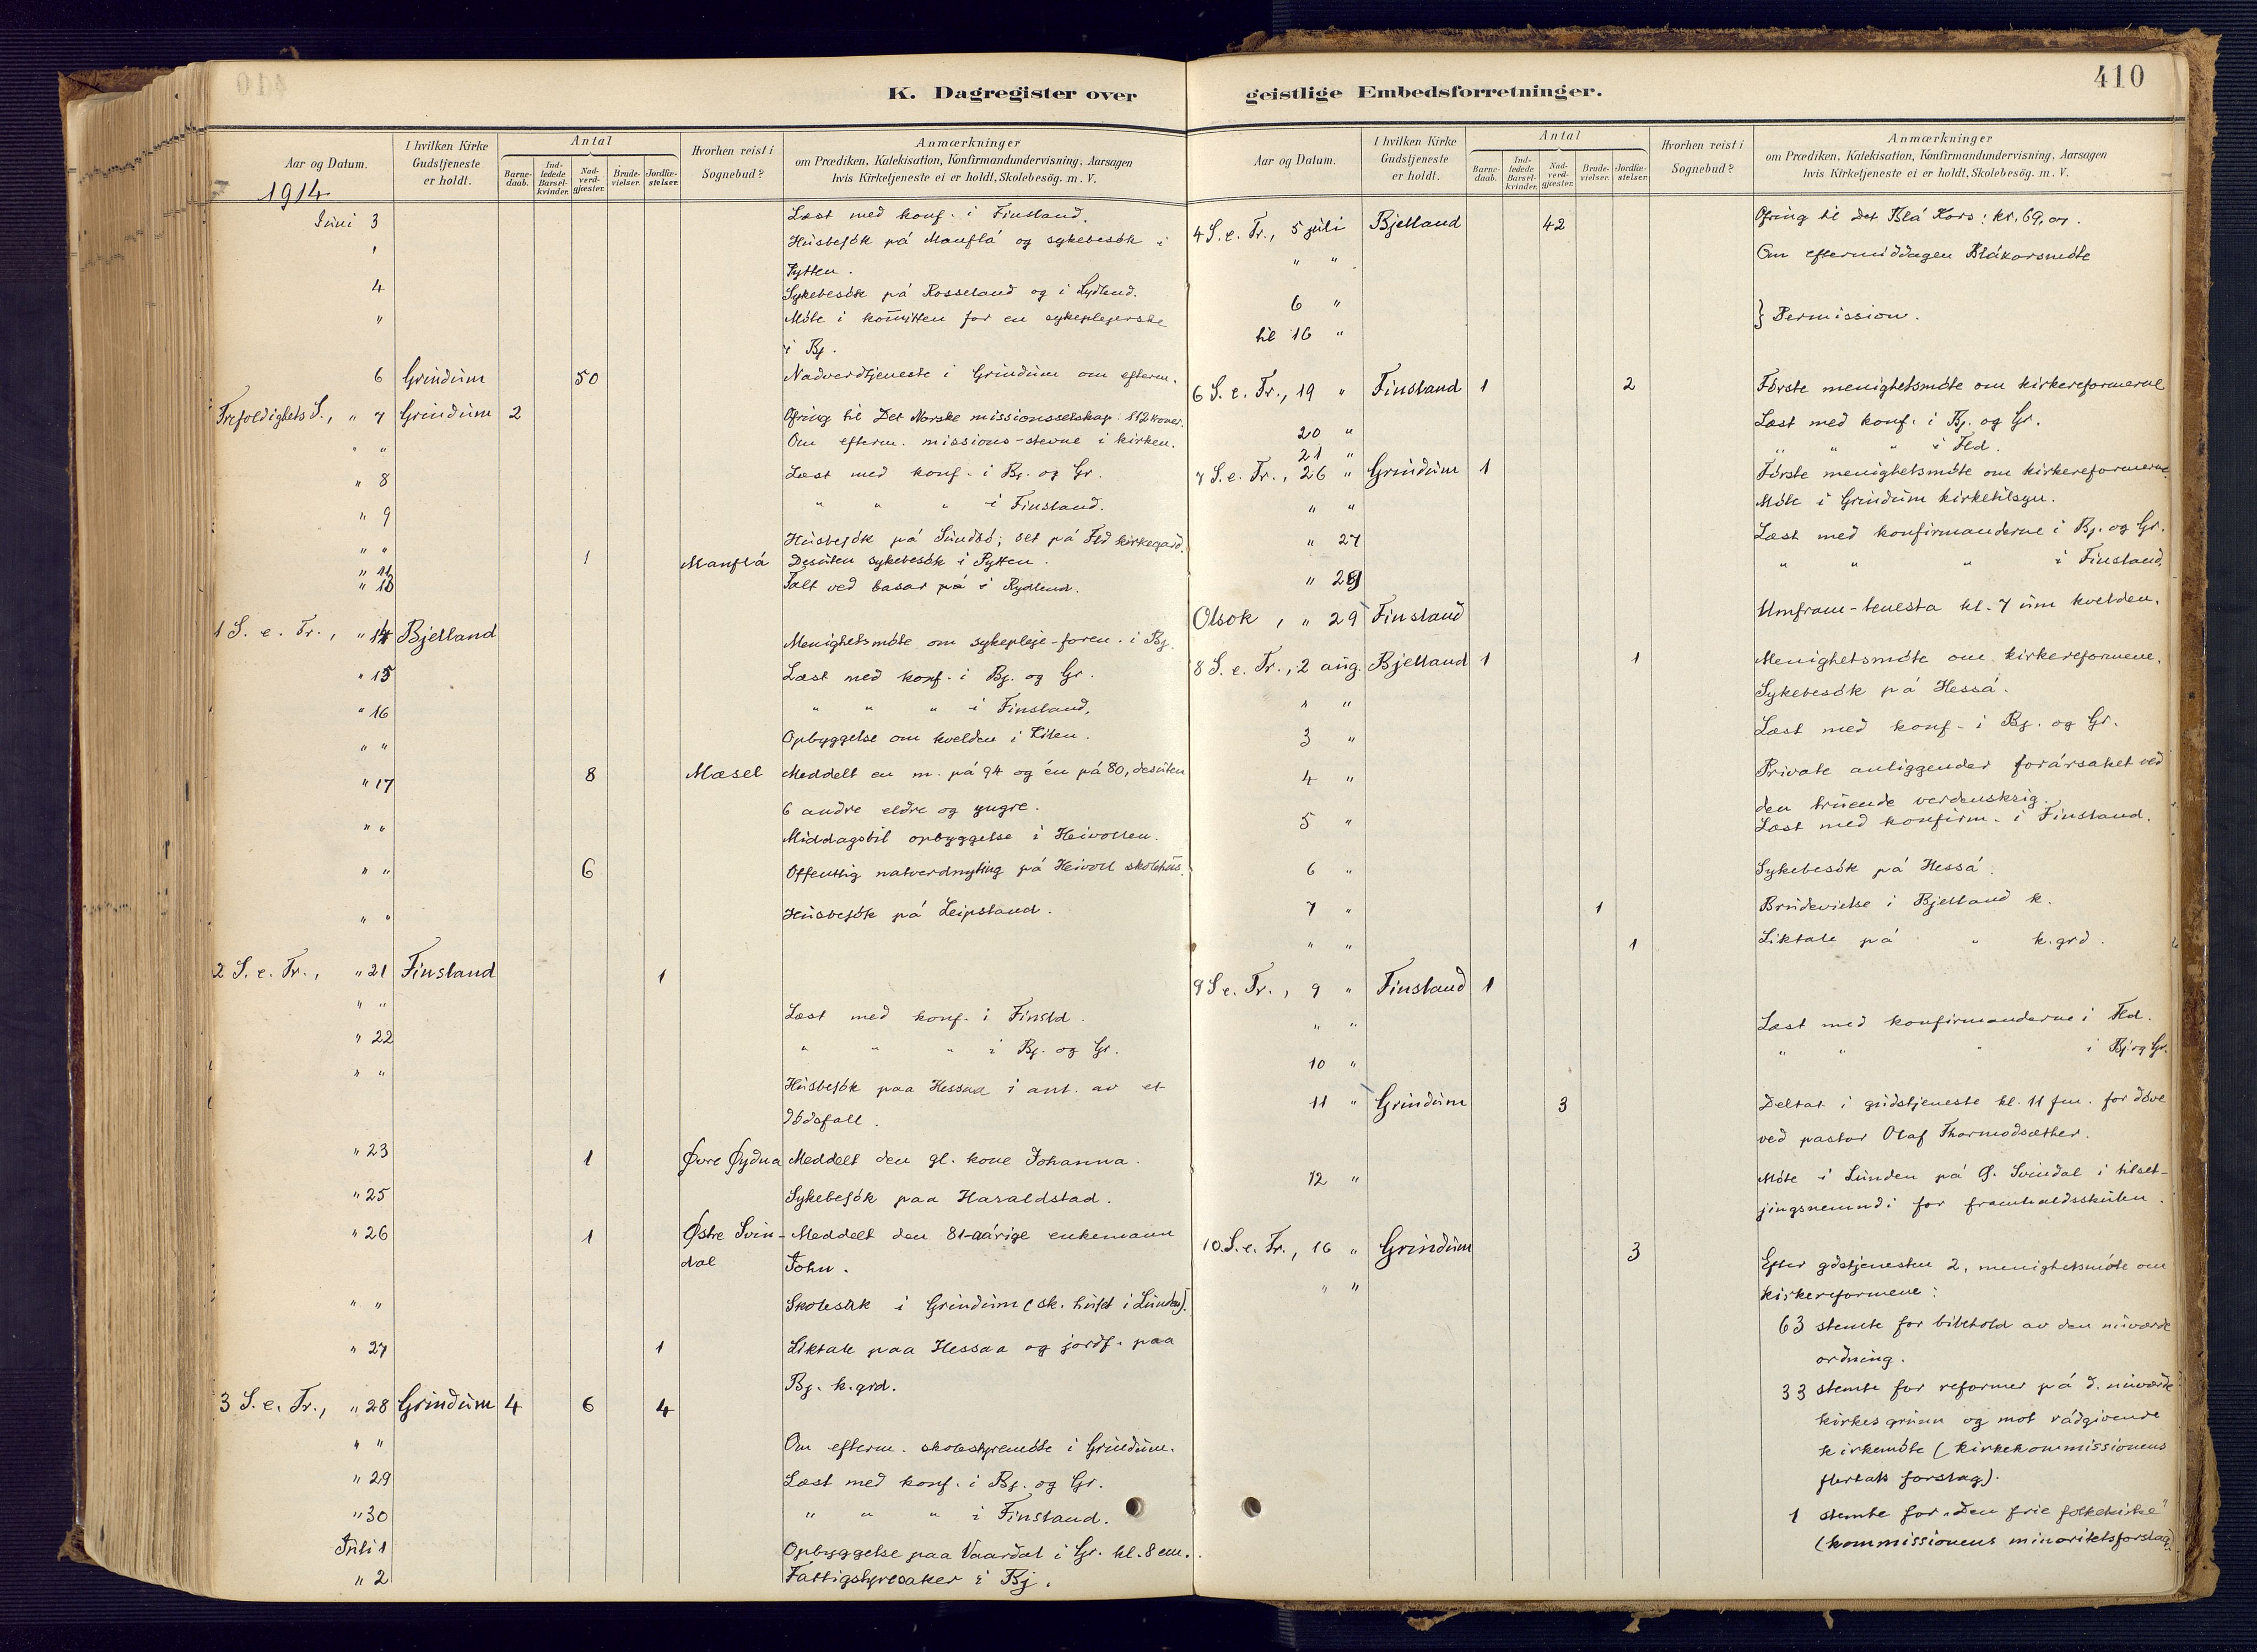 410
K. Dagregister over geistlige Embedsforretninger.
Aar og Datum. I hvilken Kirke Gudstjeneste er holdt. Antal Barnedaab. Indledede Barselkvinder. Nadverdgjæster. Brudevielser. Jordfæstelser. Hvorhen reist i Sognebud? Anmærkninger om Prædiken, Katekisation, Konfirmandundervisning, Aarsagen hvis Kirketjeneste ei er holdt, Skolebesög. m. V.
1914
Juni 3 Læst med konf. i Finsland.
" Husbesök på Manflå og sykebesök i
Pytten.
4 Sykebesök på Rosseland og i Rydlend.
" Möte i komitten for en sykeplejerske
i Bj.
6 Grindum 50 Nadverdtjeneste i Grindum om efterm.
Trefoldighets S., " 7 Grindum 2 Ofring til Det Norske missionsselskap: 112 kroner.
" " Om efterm. missions-stevne i kirken.
" 8 Læst med konf. i Bj. og Gr.
" 9 " " " i Finsland.
" " Husbesök på Sundsö; set på Fld kirkegard.
" 11 1 Manflå Desuten sykebesök i Pytten.
" 13 Talt ved basar på i Rydlend.
1 S. e. Tr., " 14 Bjelland
Menighetsmöte om sykepleje-foren. i Bj.
" 15 Læst med konf. i Bj. og Gr.
" 16 " " " i Finsland.
" " Opbyggelse om kvelden i Kilen.
" 17 8 Mæsel Meddelt en m. på 94 og én på 80, desuten
6 andre eldre og yngre.
" " Middagsbil opbyggelse i Heivollen.
" " 6 Offentlig natverdnyting på Heivoll skolehus.
" " Husbesök på Leipsland.
2 S. e. Tr., " 21 Finsland 1
" " Læst med konf. i Finsld.
" 22 " " " i Bj. og Gr.
" " Husbesök paa Hessaa i anl. av et
dödsfall.
" 23 1 Övre Öydna Meddelt den gl. kone Johanna.
" 25 Sykebesök paa Haraldstad.
" 26 1 Östre Svin- Meddelt den 81-aarige enkemann
dal John.
" " Skolesak i Grindum (sk. huset i Lunden).
" 27 1 Liktale paa Hessaa og jordf. paa
Bj. k.grd.
3 S. e. Tr., " 28 Grindum 4 6 4
" " Om efterm. skolestyremöte i Grindum.
" 29 Læst med konf. i Bj. og Gr.
" 30 " " " i Finsland.
Juli 1 Opbyggelse paa Vaardal i Gr. kl. 8 em.
" 2 Fattigstyresaker i Bj.
410
Aar og Datum. I hvilken Kirke Gudstjeneste er holdt. Antal Barnedaab. Indledede Barselkvinder. Nadverdgjæster. Brudevielser. Jordfæstelser. Hvorhen reist i Sognebud? Anmærkninger om Prædiken, Katekisation, Konfirmandundervisning, Aarsagen hvis Kirketjeneste ei er holdt, Skolebesög. m. V.
4 S. e. Tr., 5 juli Bjelland 42 Ofring til Det Blå Kors: kr. 69,07.
" " Om eftermiddagen Blåkorsmöte
6 "
til 16 " } Permission.
6 S. e. Tr., 19 " Finsland 1 2 Förste menighetsmöte om kirkereformerne
20 " Læst med konf. i Bj. og Gr.
21 " " " " i Fld.
7 S. e. Tr., 26 " Grindum 1 Förste menighetsmöte om kirkereformerne.
" " Möte i Grindum kirketilsyn.
" 27 Læst med konfirmanderne i Bj. og Gr.
" 28 " " " i Finsland.
Olsok, " 29 Finsland Umfram-tenesta kl. 7 um kvelden.
8 S. e. Tr., 2 aug. Bjelland 1 1 Menighetsmöte om kirkereformene.
" " Sykebesök på Hesså.
3 " Læst med konf. i Bj. og Gr.
4 " Private anliggender forårsaket ved
den truende verdenskrig.
5 " Læst med konfirm. i Finsland.
6 " Sykebesök på Hesså.
7 " 1 Brudevielse i Bjelland k.
" " 1 Liktale på " k.grd.
9 S. e. Tr., 9 " Finsland 1
" " Læst med konfirmanderne i Fld.
10 " " " " i Bj. og Gr.
11 " Grindum 3 Deltat i gudstjeneste kl. 11 fm. for döve
ved pastor Olaf Thormodsæther.
12 " Möte i Lunden på Ö. Svindal i tilset-
jingsnemndi for framhaldsskulen.
10. S. e. Tr., 16 " Grindum 3
" " Efter gdstjenesten 2. menighetsmöte om
kirkereformene:
63 stemte for bibehold av den nuværde
ordning.
33 stemte for reformer på d. nuværde
kirkes grunn og mot rådgivende
kirkemöte (kirkekommissionens
flertals forslag).
1 stemte for "Den frie folkekirke"
(kommissionens minoritetsforslag).